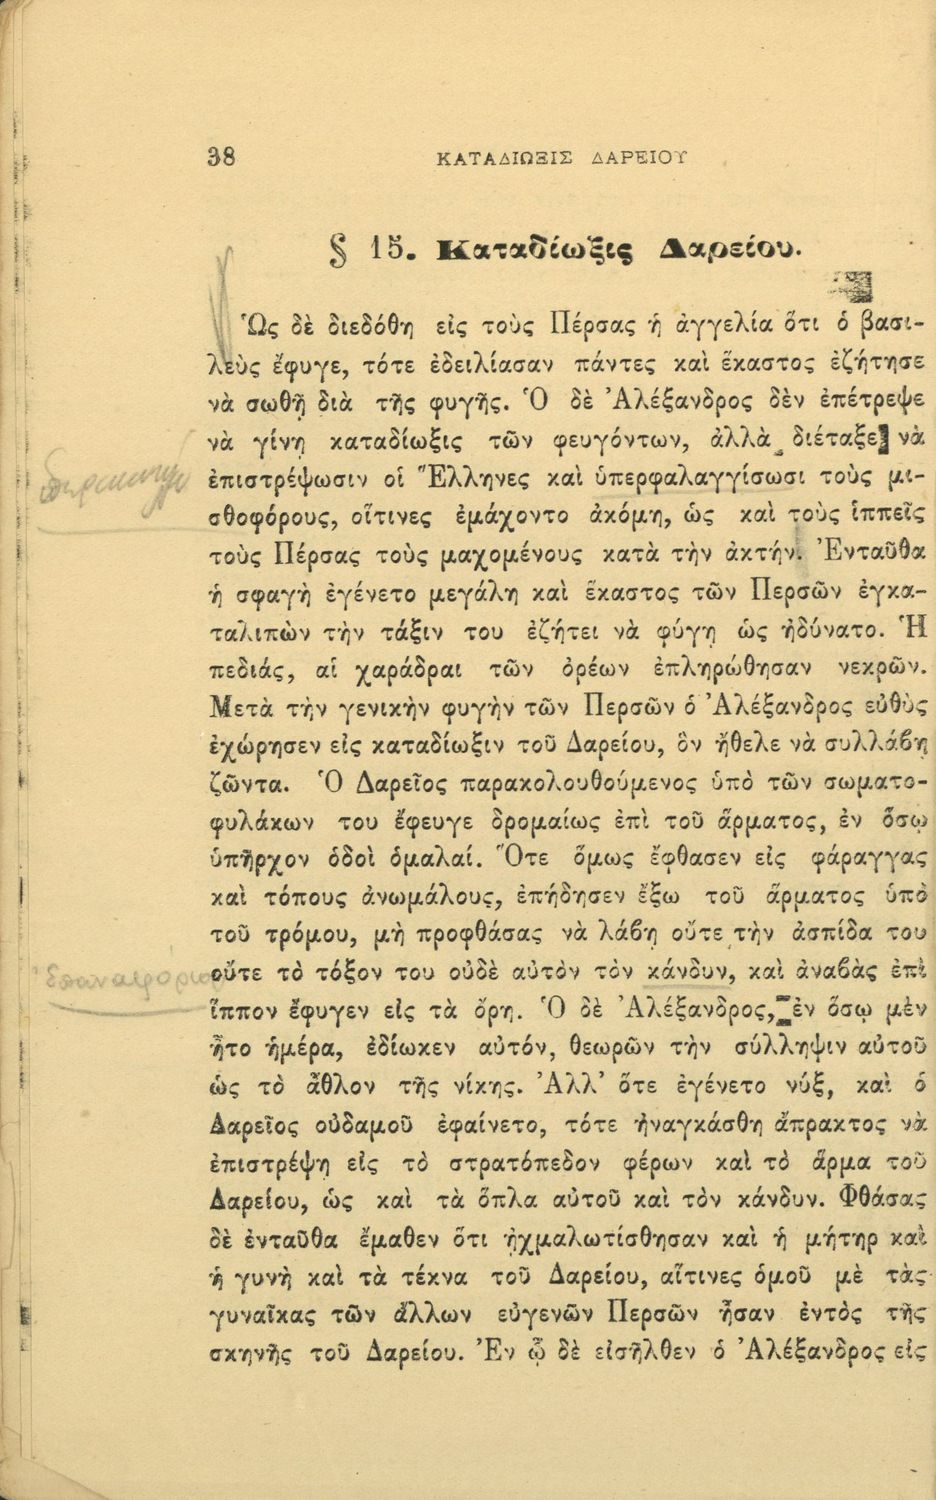 38 ΚΑΤΑΔΙΩΞΙΣ ΔΑΡΕΙΟΥ
§ 15. Καταδίωξις Δαρείου.
Ὡς δὲ διεδόθη εἰς τοὺς Πέρσας ἡ ἀγγελία ὅτι ὁ βασι-
λεὺς ἔφυγε, τότε ἐδειλίασαν πάντες καὶ ἕκαστος ἐζήτησε
νὰ σωθῇ διὰ τῆς φυγῆς. Ὁ δὲ Ἀλέξανδρος δὲν ἐπέτρεψε
νὰ γίνῃ καταδίωξις τῶν φευγόντων, ἀλλὰ διέταξε νὰ
ἐπιστρέψωσιν οἱ Ἕλληνες καὶ ὑπερφαλαγγίσωσι τοὺς μι-
σθοφόρους, οἵτινες ἐμάχοντο ἀκόμη, ὡς καὶ τοὺς ἱππεῖς
τοὺς Πέρσας τοὺς μαχομένους κατὰ τὴν ἀκτήν. Ἐνταῦθα
ἡ σφαγὴ ἐγένετο μεγάλη καὶ ἕκαστος τῶν Περσῶν ἐγκα-
ταλιπὼν τὴν τάξιν του ἐζήτει νὰ φύγῃ ὡς ἠδύνατο. Ἡ
πεδιάς, αἱ χαράδραι τῶν ὀρέων ἐπληρώθησαν νεκρῶν.
Μετὰ τὴν γενικὴν φυγὴν τῶν Περσῶν ὁ Ἀλέξανδρος εὐθὺς
ἐχώρησεν εἰς καταδίωξιν τοῦ Δαρείου, ὃν ἤθελε νὰ συλλάβῃ
ζῶντα. Ὁ Δαρεῖος παρακολουθούμενος ὑπὸ τῶν σωματο-
φυλάκων του ἔφευγε δρομαίως ἐπὶ τοῦ ἅρματος, ἐν ὅσῳ
ὑπῆρχον ὁδοὶ ὁμαλαί. Ὅτε ὅμως ἔφθασεν εἰς φάραγγας
καὶ τόπους ἀνωμάλους, ἐπήδησεν ἔξω τοῦ ἅρματος ὑπὸ
τοῦ τρόμου, μὴ προφθάσας νὰ λάβῃ οὔτε τὴν ἀσπίδα του
οὔτε τὸ τόξον του οὐδὲ αὐτὸν τὸν κάνδυν, καὶ ἀναβὰς ἐπὶ
ἵππον ἔφυγεν εἰς τὰ ὄρη. Ὁ δὲ Ἀλέξανδρος, ἐν ὅσῳ μὲν
ἦτο ἡμέρα, ἐδίωκεν αὐτόν, θεωρῶν τὴν σύλληψιν αὐτοῦ
ὡς τὸ ἆθλον τῆς νίκης. Ἀλλ' ὅτε ἐγένετο νύξ, καὶ ὁ
Δαρεῖος οὐδαμοῦ ἐφαίνετο, τότε ἠναγκάσθη ἄπρακτος νὰ
ἐπιστρέψῃ εἰς τὸ στρατόπεδον φέρων καὶ τὸ ἅρμα τοῦ
Δαρείου, ὡς καὶ τὰ ὅπλα αὐτοῦ καὶ τὸν κάνδυν. Φθάσας
δὲ ἐνταῦθα ἔμαθεν ὅτι ᾐχμαλωτίσθησαν καὶ ἡ μήτηρ καὶ
ἡ γυνὴ καὶ τὰ τέκνα τοῦ Δαρείου, αἵτινες ὁμοῦ μὲ τὰς
γυναῖκας τῶν ἄλλων εὐγενῶν Περσῶν ἦσαν ἐντὸς τῆς
σκηνῆς τοῦ Δαρείου. Ἐν ᾧ δὲ εἰσῆλθεν ὁ Ἀλέξανδρος εἰς